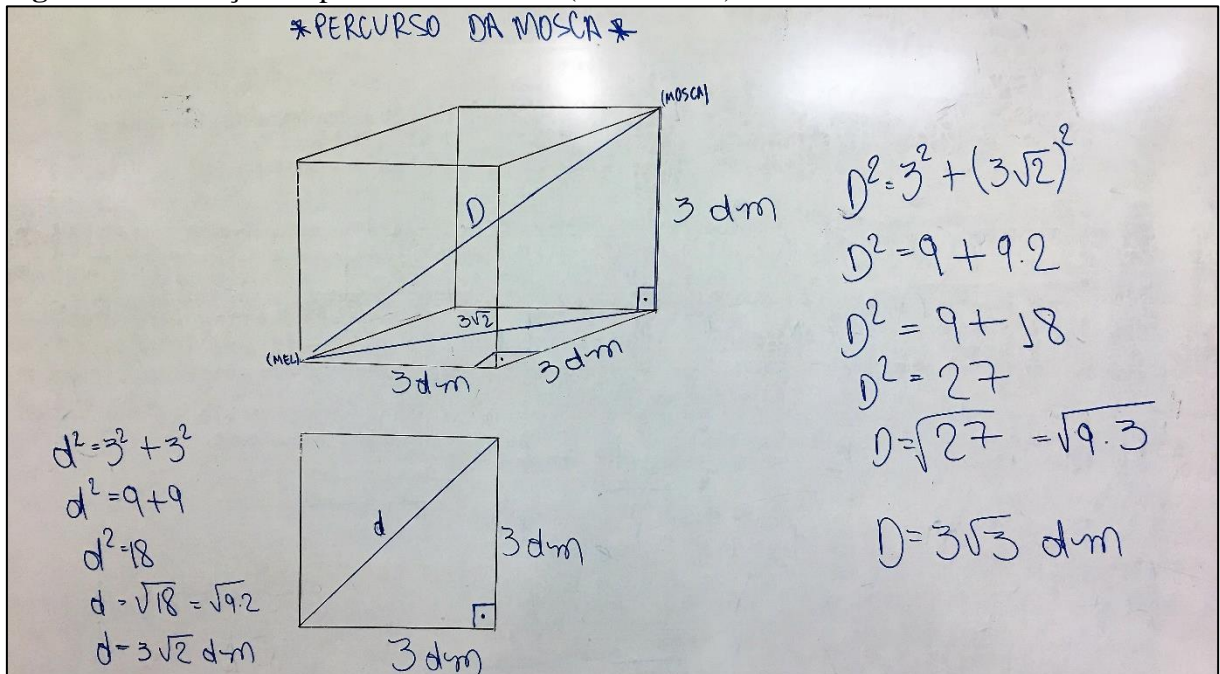 *PERCURSO DA MOSCA*
(MOSCA)
D
3 dm
3√2
(MEL)
3 dm
3 dm
D²=3²+(3√2)²
D²=9+9.2
D²=9+18
D²=27
D=√27 =√9.3
D=3√3 dm
d²=3²+3²
d²=9+9
d²=18
d=√18=√9.2
d=3√2 dm
d
3 dm
3 dm